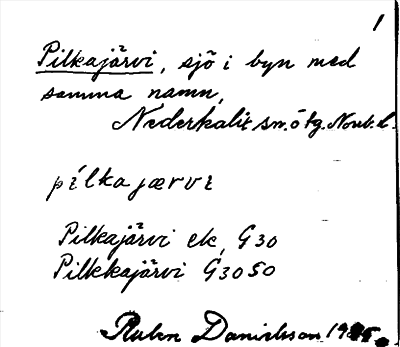 1
Pilkajärvi, sjö i byn med
samma namn,
Nederkalix sn. ö tg. Norrb. l.
pilkajærvi
Pilkajärvi ek, G30
Pilkkajärvi G3050
Ruben Danielsson